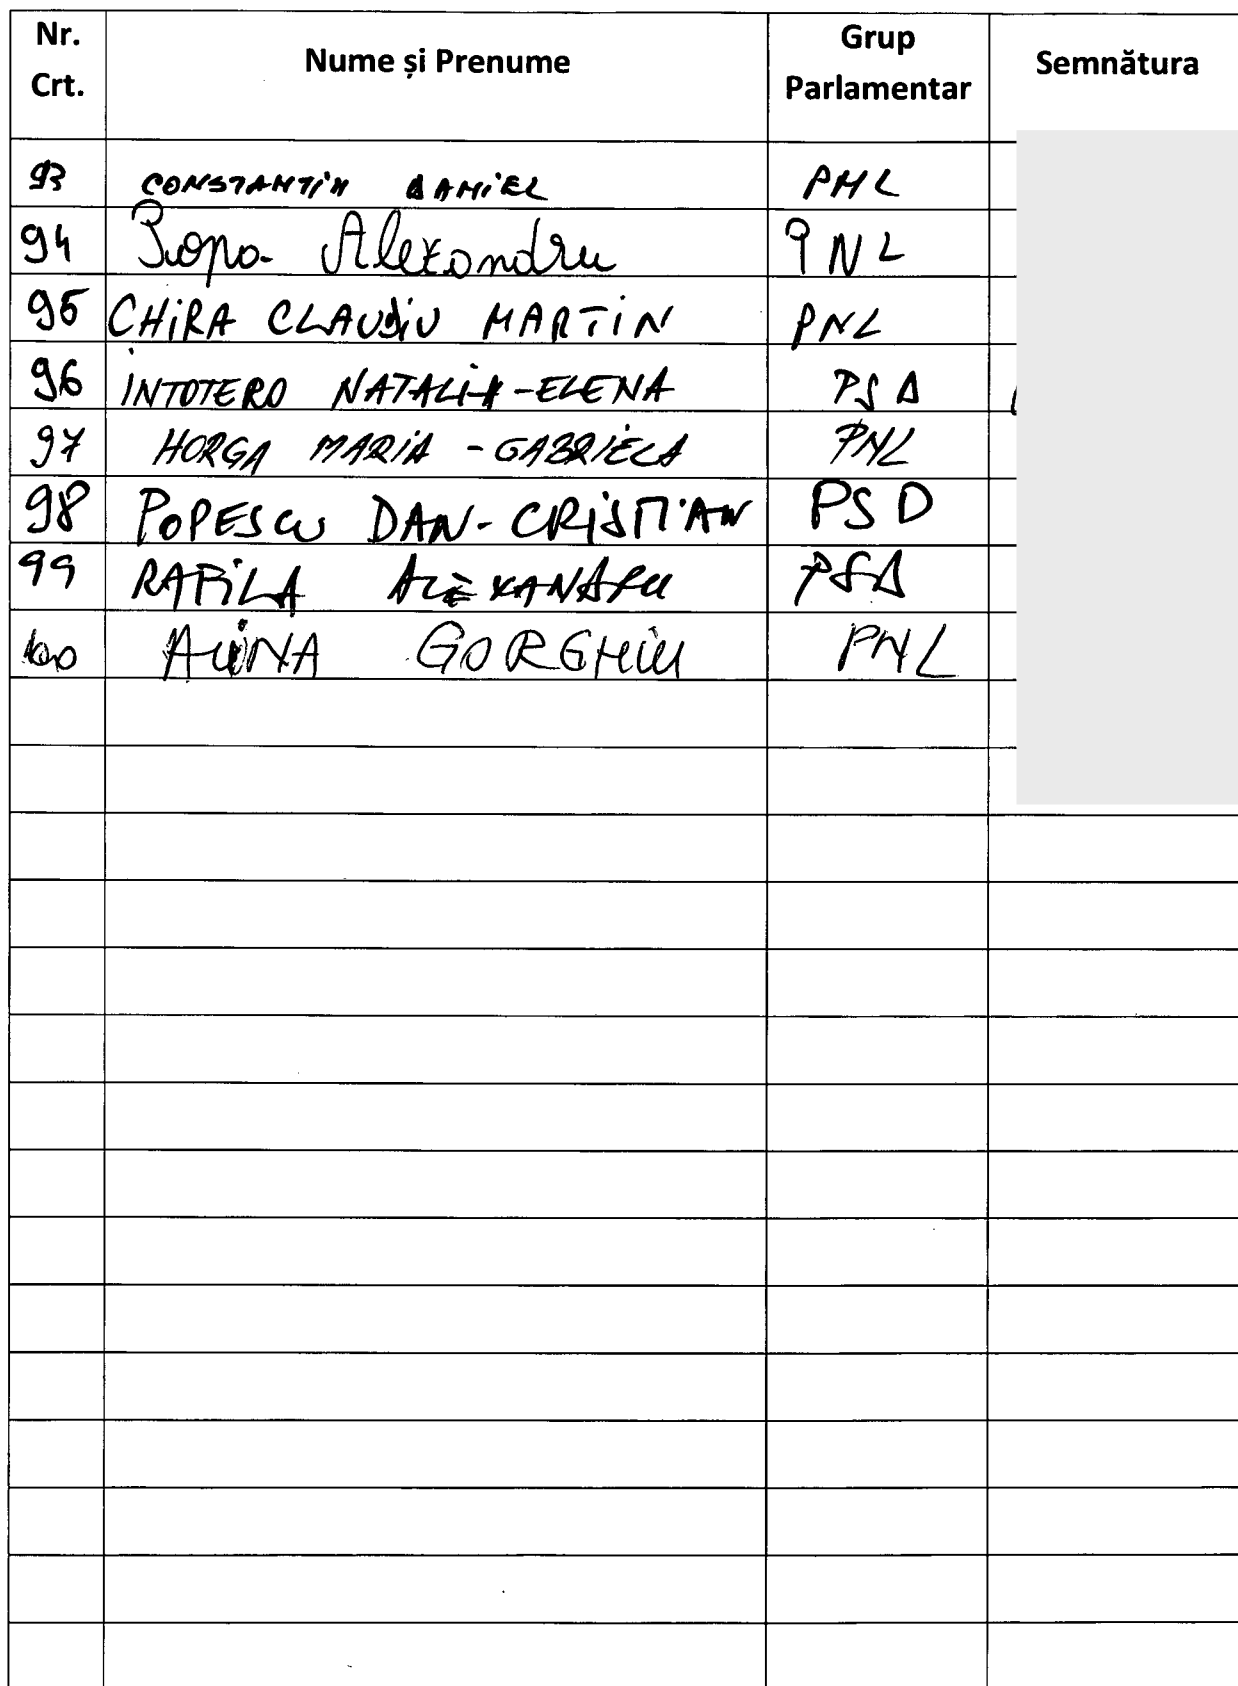 Nr. Crt. Nume și Prenume Grup Parlamentar Semnătura
93 CONSTANTIN DANIEL PNL
94 Popa Alexandru PNL
95 CHIRA CLAUDIU MARTIN PNL
96 INTOTERO NATALIA-ELENA PSD
97 HORGA MARIA-GABRIELA PNL
98 POPESCU DAN-CRISTIAN PSD
99 RAFILA ALEXANDRU PSD
100 ALINA GORGHIU PNL